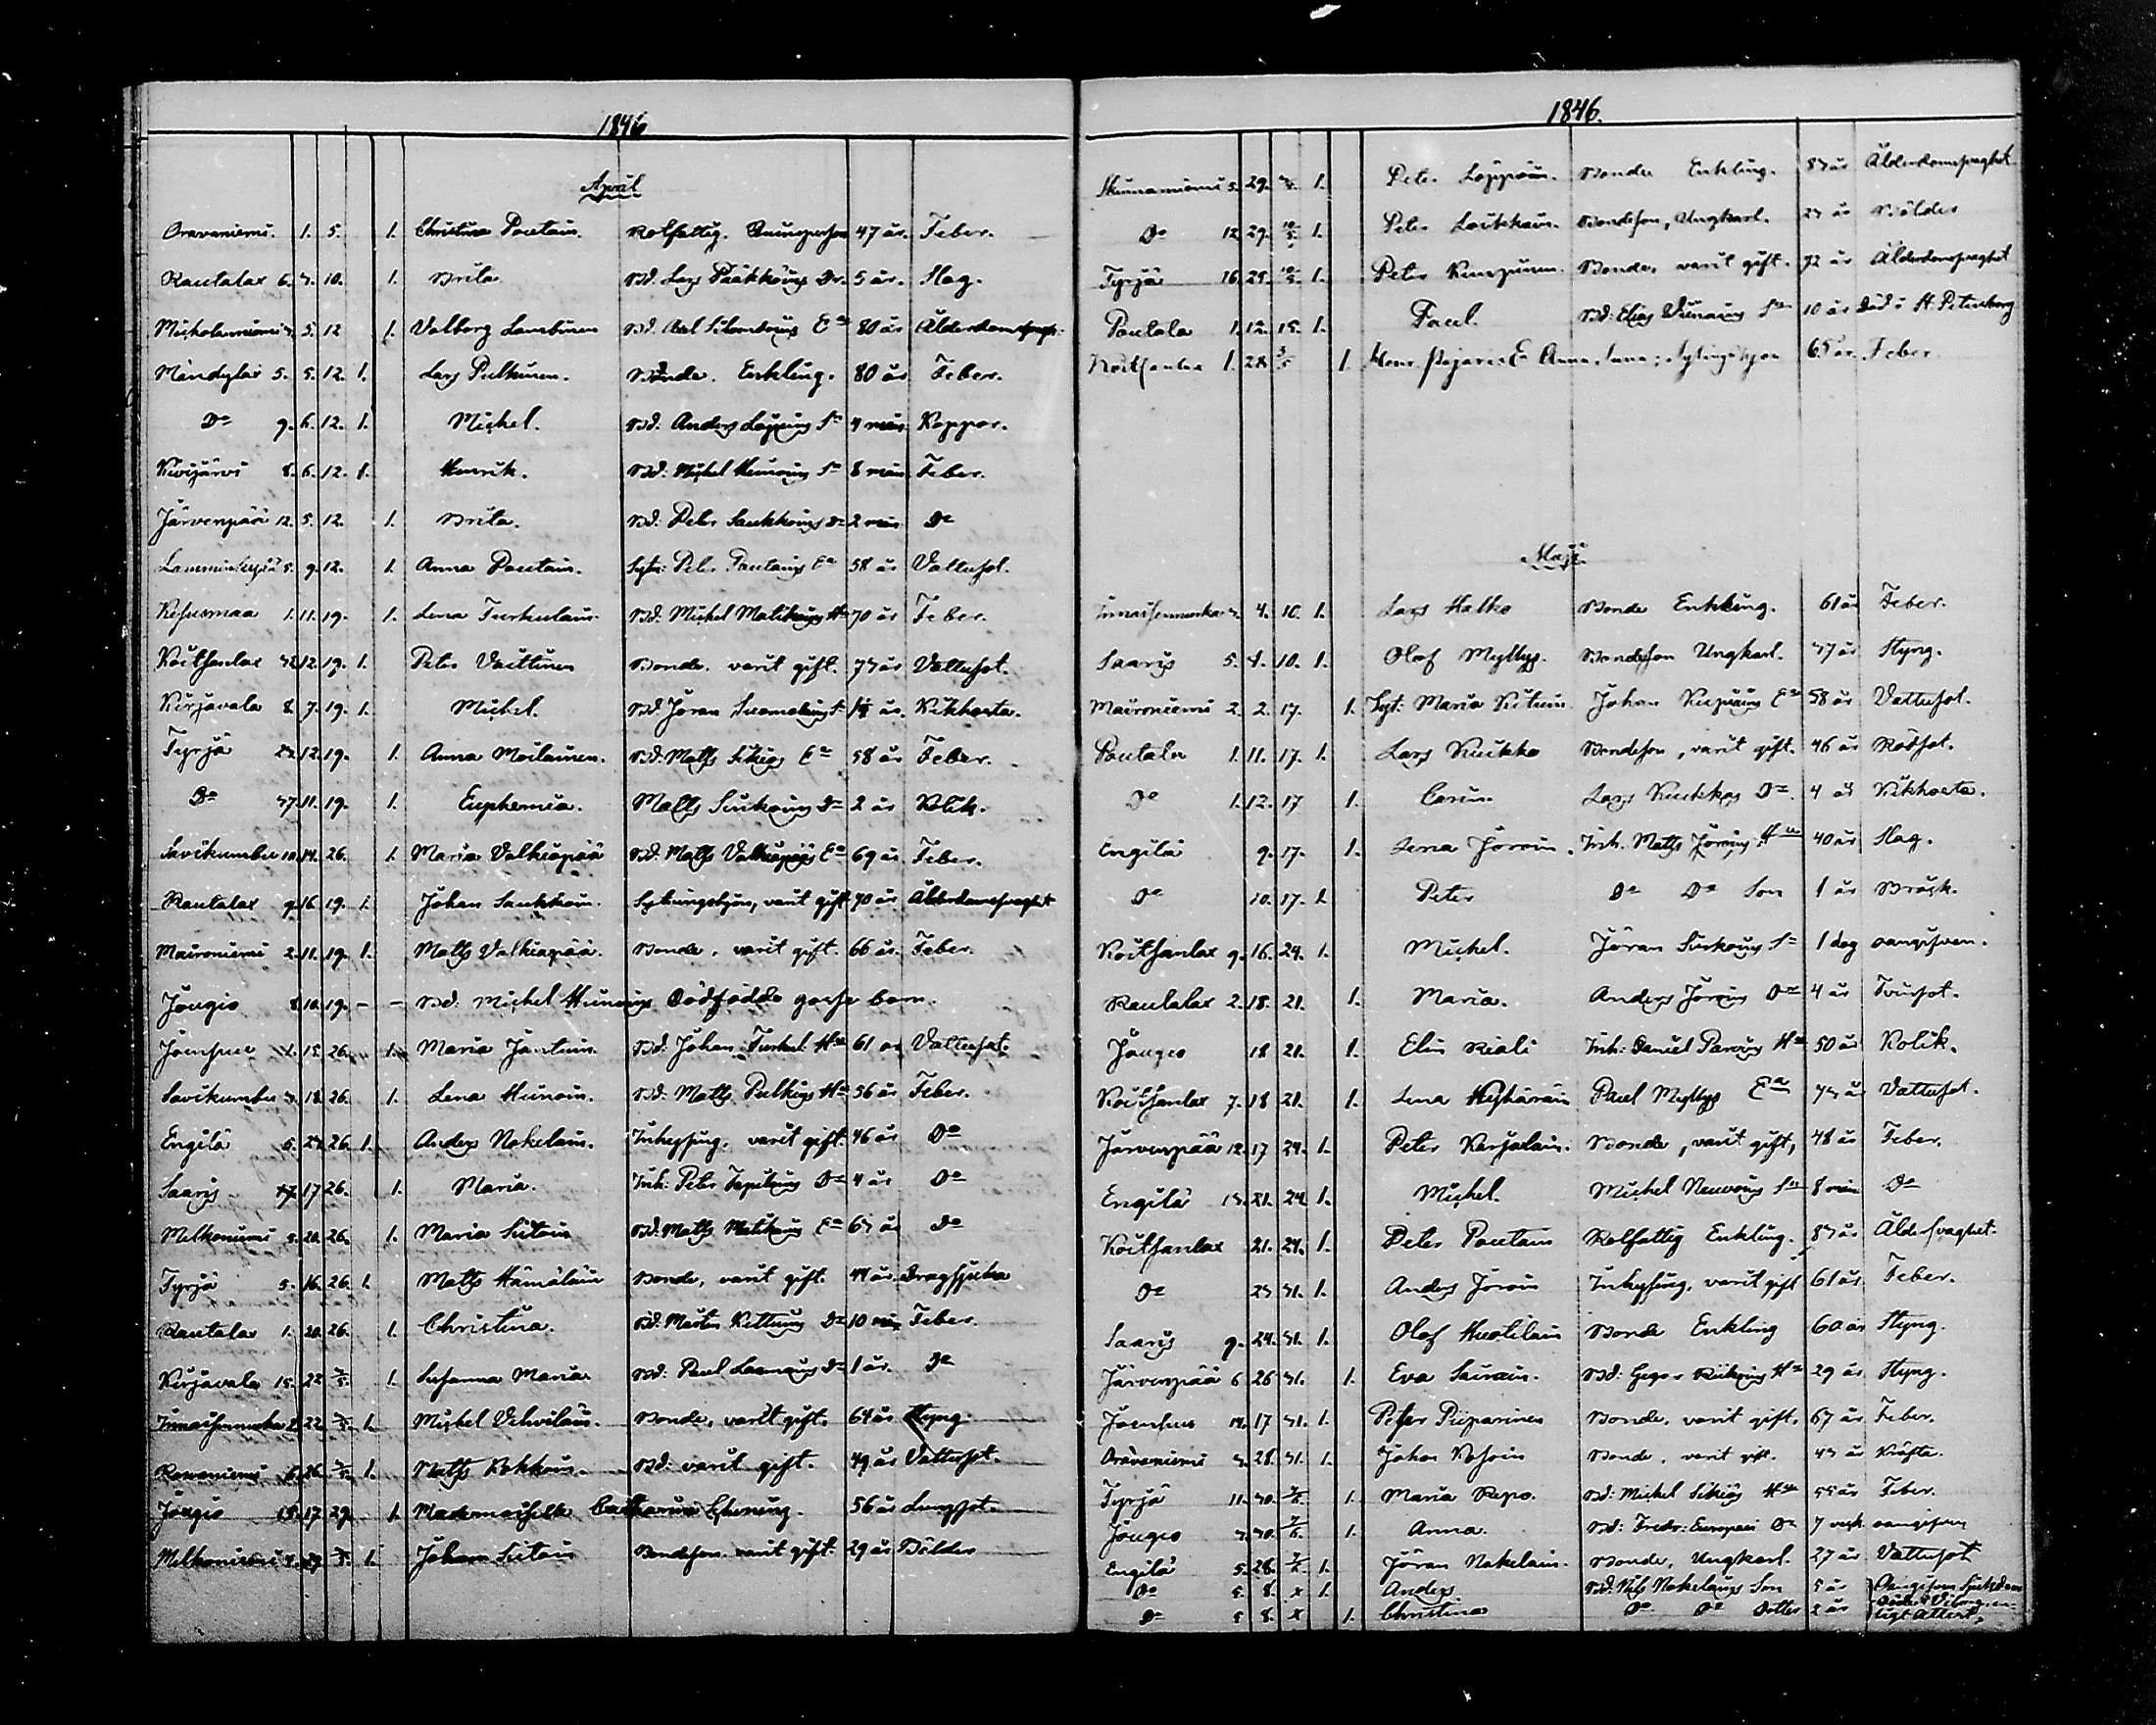 1846
April
Oravaniemi. 1. 5. 1. Christina Poutain. Rotfattig. Qvinsperson 47 år. Feber.
Rautalax 6. 3. 10. 1. Brita Bd. Lars Pääkköinys Dr. 5 år. Slag.
5. 12 1. Valborg Lambinen Bd. Axel Silvendoinys Ea 80 år Ålderdomssvagh.
Mändylax 5. 5. 12. 1. Lars Pulkinen. Bonde. Enkling. 80 år Feber.
Do 9. 6. 12. 1. Michel. Bd. Anders Loppinys Sn 4 mån. Koppor.
Kivijärvi 8. 6. 12. 1. Henrik. Bd. Michel Hinnoinys Sn 8 mån Feber.
Järvenpää 12. 5. 12. 1. Brita. Bd. Peter Saukkoinys Dr 2 mån Do
5. 9. 12. 1. Anna Poutain. Peter Poutainys Ea 58 år Vattusot.
Kesusmaa 1. 11. 19. 1. Lena Turkulain. Bd. Michel Matikainys Hu 70 år Feber.
Koitsanlax 12. 19. 1. Peter Vaittinen Bonde. varit gift. 73 år Vattusot.
Kirjavala 8. 7. 19. 1. Michel. Bd Jöran Suomalainys S. år. Kikhosta.
Tyrjä 12. 19. 1. Anna Moilainen. Bd. Matts Sikiös Ea 58 år Feber.
Do 37. 11. 19. 1. Euphemia. Matts Sirkoinys Dr 2 år Kolik.
Savikumbu 10. 14. 26. 1. Maria Valkiapää Bd. Matts Valkiapääs Ea 69 år Feber.
Rautalax 9. 16 19. 1. Johan Saukkoin. Sytningshjon, varit gift 70 år Ålderdomssvaghet
Maironiemi 2. 11. 19. 1. Matts Valkiapää. Bonde, varit gift. 66 år. Feber.
Jougio 8. 10. 19. — — Bd. Michel Hinnoinys Dödfödde gosse barn.
Joensuu 1. 15. 26. 1. Maria Jäntuin. Bd. Johan Turkel. Hu 61 år Vattusot.
Savikumbu 3. 18. 26. 1. Lena Hinnoin. Bd. Matts Pulkinys Hu 56 år Feber.
Engilä 5. 26. 1. Anders Nokelain. Inhysing, varit gift. 46 år Do
Saaris 17 26. 1. Maria. Inh: Peter Dr 4 år Do
Melkoniemi 5. 20. 26. 1. Maria Siitoin Bd. Matts Matikainys Ea 63 år Do
Tyrjä 5. 16. 26. 1. Matts Hämäläin Bonde, varit gift. 44 år. Dragsjuka
Rautalax 1. 20. 26. 1. Christina. Bd. Mårten Kettunys Dr 10 mån Feber.
Kirjavala 15. 22 3/5. 1. Susanna Maria Bd. Paul Dr 1 år. Do
2. 22. 3/5. 1. Michel Vehviläin. Bonde, varit gift. 64 år Styng.
6. 26. 3/5. 1. Matts Bd. varit gift. 49 år Vattusot.
Jougio 15. 17. 29. 1. Mademoiselle Catharina 56 år Lungsot.
Melkoniemi 4. 29. 3/5. 1. Johan Siitoin Bondeson. varit gift. 29 år Bölder
1846.
5. 29. 1. Peter Loppoin. Bonde Enkling. 83 år Ålderdomsvaghet
Do 12. 29. 10/5. 1. Peter Loikkain. Bondeson, Ungkarl. 23 år Bölder
Tyrjä 16. 29. 10/5. 1. Peter Kumpuinen. Bonde, varit gift. 72 år Ålderdomsvaghet
Poutala 1. 12. 15. 1. Paul. Bd: Elias Sn 10 år Död i St. Petersborg
Koitsanlax 1. 28. 3/5 1. Henr. Ea Anna 65 år. Feber
Maji.
3. 4. 10. 1. Lars Halko Bonde Enkling. 61 år Feber.
Saaris 5. 4. 10. 1. Olof Myllys. Bondeson Ungkarl. 37 år Styng.
Maironiemi 2. 2. 17. 1. Maria Kituin Johan Ea 58 år Vattusot.
Poutala 1. 11. 17. 1. Lars Kuikko Bondeson, varit gift. 46 år Rödsot.
Do 1. 12. 17 1. Carin. Lars Kuikkos Dr. 4 år Kikhosta.
Engilä 9. 17. 1. Lena Jöroin. Inh. Matts Jöroinys Hu 40 år Slag.
Do 10. 17. 1. Peter Do Do Son 1 år Bråck.
Koitsanlax 9. 16. 24. 1. Michel. Jöran Sirkoinys Sn 1 dag oangifven.
Rautalax 2. 18. 21. 1. Maria. Anders Jöroinys Dr 4 år Tvinsot.
Jougio 18 21. 1. Elin Riali Inh: Daniel Paroinys Hu 50 år Kolik.
Koitsanlax 7. 18 21. 1. Lena Paul Myllys Ea 73 år Vattusot.
Järvenpää 12. 17 24. 1. Peter Karjalain. Bonde, varit gift, 48 år Feber.
Engilä 21. 24 1. Michel. Michel Neuvoinys Sn 8 mån Do
Koitsanlax 21. 24. 1. Peter Poutain Rotfattig Enkling. 83 år Ålderssvaghet.
Do 23 31. 1. Anders Jöroin Inhysing, varit gift 61 år. Feber.
Saaris 9. 24. 31. 1. Olof Huotilain Bonde Enkling 60 år Styng.
Järvenpää 6 26 31. 1. Eva Sairain. Bd: Gregor Hu 29 år Styng.
Joensuu 14. 17 31. 1. Peter Piiparinen Bonde, varit gift. 67 år Feber.
Oravaniemi 3. 28. 31. 1. Johan Bonde, varit gift. 43 år Kräfta.
Tyrjä 11. 30. 7/6. 1. Maria Repo. Bd: Michel Sikiös Hu 55 år Feber.
Jougio 3. 30. 7/6. 1. Anna. Bd: Fredr: Europaei Dr 7 veck oangifven
Engilä 5. 28. 7/6. 1. Jöran Nokelain. Bonde, Ungkarl. 27 år Vattusot
Do 5. 8. x 1. Anders Bd. Nils Nokelainys Son 5 år Oangifven Sjukdom
Do 5 8. x 1. Christina Do Do Dotter 2 år ligt Attest.